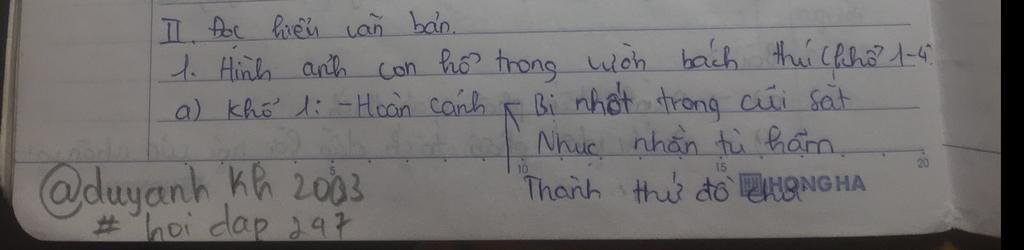 II. Đọc hiểu văn bản.
1. Hình ảnh con hổ trong vườn bách thú (khổ 1-4)
a) Khổ 1: - Hoàn cảnh Bị nhốt trong cũi sắt
Nhục nhằn tù hãm
5 10 15 20
@duyanh Kh 2003 Thành thứ đồ chơi HONG HA
# hoi dap 247